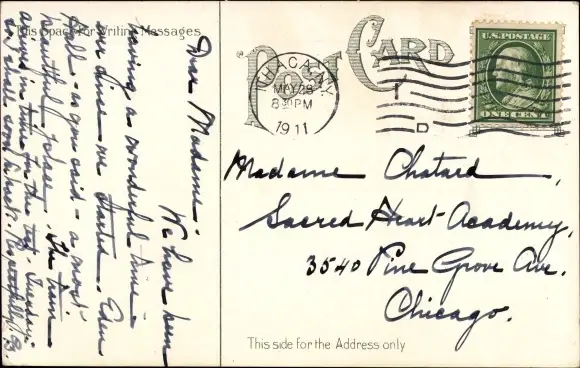 This Space For Writing Messages
Dear Madame:
We have been
having a wonderful time
ever since we started. Eden
Hall - as you said - a most
beautiful place. The train
arrived in time for the
so shall soon be back. Respectfully, B.
POST CARD
ITHACA, N.Y.
MAY 28
8 30 PM
1911
D
U.S. POSTAGE
ONE CENT
Madame Chatard,
Sacred Heart Academy,
3540 Pine Grove Ave.
Chicago.
This side for the Address only